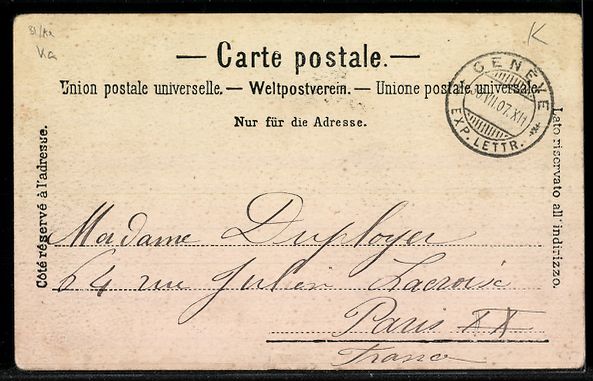 31/12
Ka
K
— Carte postale. —
Union postale universelle. — Weltpostverein. — Unione postale universale.
Nur für die Adresse.
GENÈVE
VII.07.XII
EXP. LETTR.
Côté réservé à l'adresse.
Lato riservato all'indirizzo.
Madame Duployer
64 rue Julien Lacroix
Paris XX
France